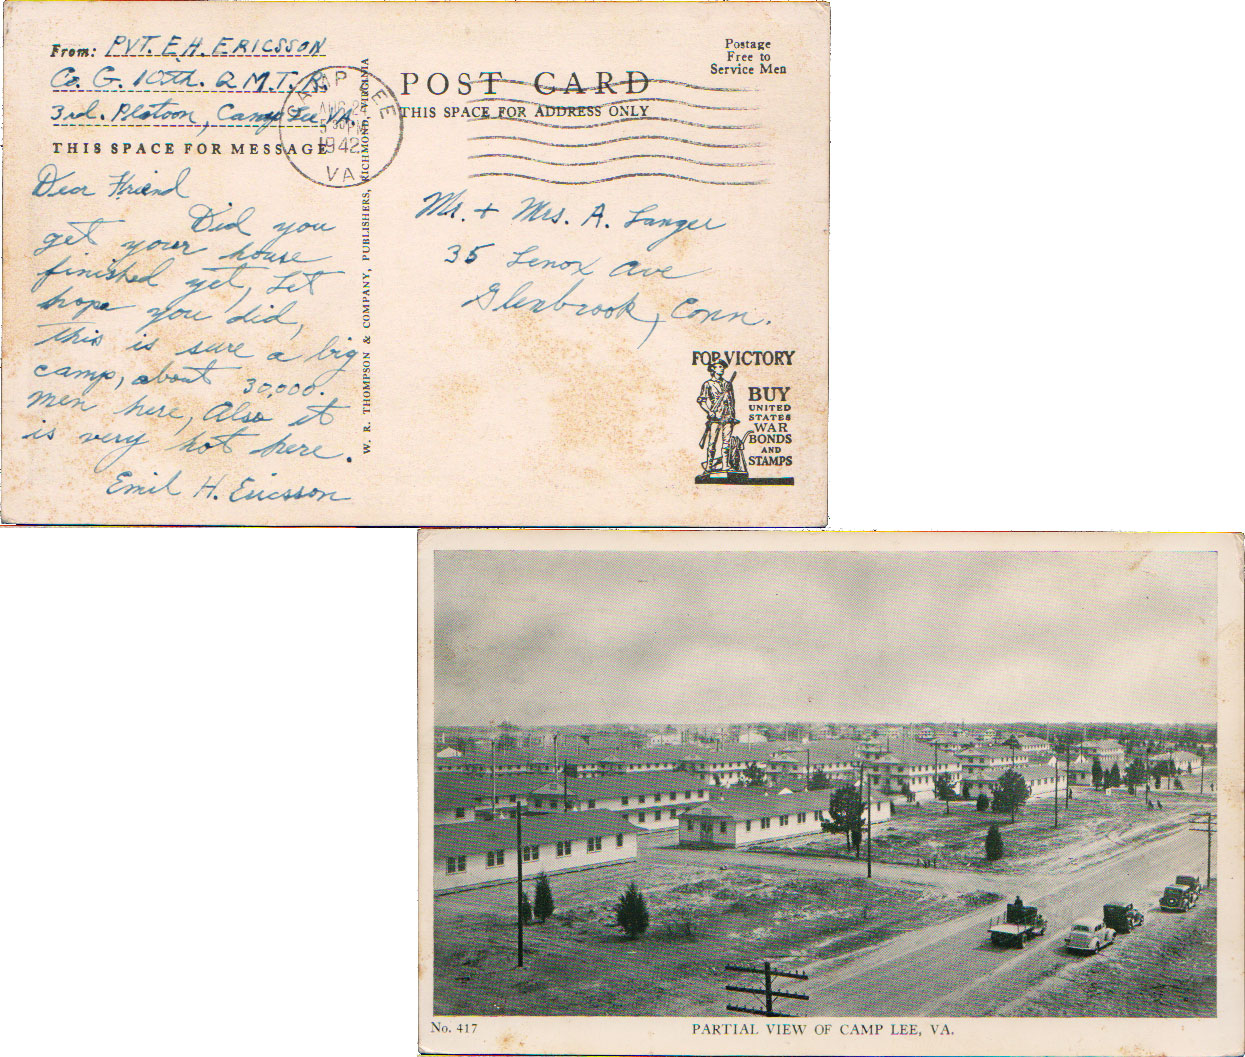 From: PVT. E.H. ERICSSON
Co. G. 10th. Q M.T.R.
3rd. Platoon, Camp Lee, VA.
THIS SPACE FOR MESSAGE
Dear Friend
Did you
get your house
finished yet, Let
hope you did,
this is sure a big
camp, about 30,000.
men here, Also it
is very hot here.
Emil H. Ericsson
W. R. THOMPSON & COMPANY, PUBLISHERS, RICHMOND, VIRGINIA
CAMP LEE
AUG
5 PM
1942
VA
POST CARD
THIS SPACE FOR ADDRESS ONLY
Postage
Free to
Service Men
Mr. + Mrs. A. Langer
35 Lenox Ave
Glenbrook, Conn.
FOR VICTORY
BUY
UNITED
STATES
WAR
BONDS
AND
STAMPS
No. 417
PARTIAL VIEW OF CAMP LEE, VA.